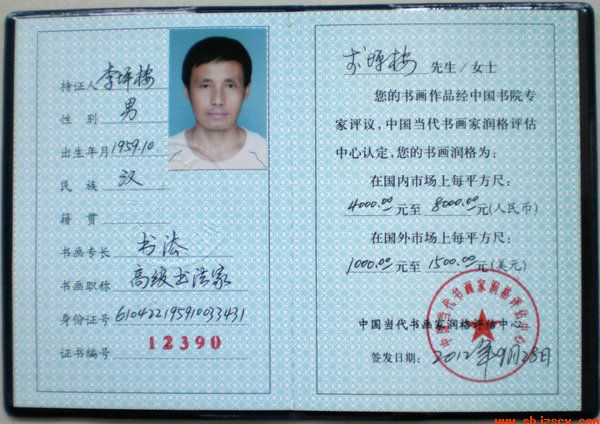 持证人
性 别 男
出生年月 1959.10.
民 族 汉
籍 贯
书画专长 书法
书画职称 高级书法家
身份证号 610422195910033431
证书编号 12390
先生/女士
您的书画作品经中国书院专
家评议,中国当代书画家润格评估
中心认定,您的书画润格为:
在国内市场上每平方尺:
4000.00元至 8000.00元(人民币)
在国外市场上每平方尺:
1000.00元至 1500.00元(美元)
中国当代书画家润格评估中心
中国当代书画家润格评估中心
签发日期: 2012年9月28日